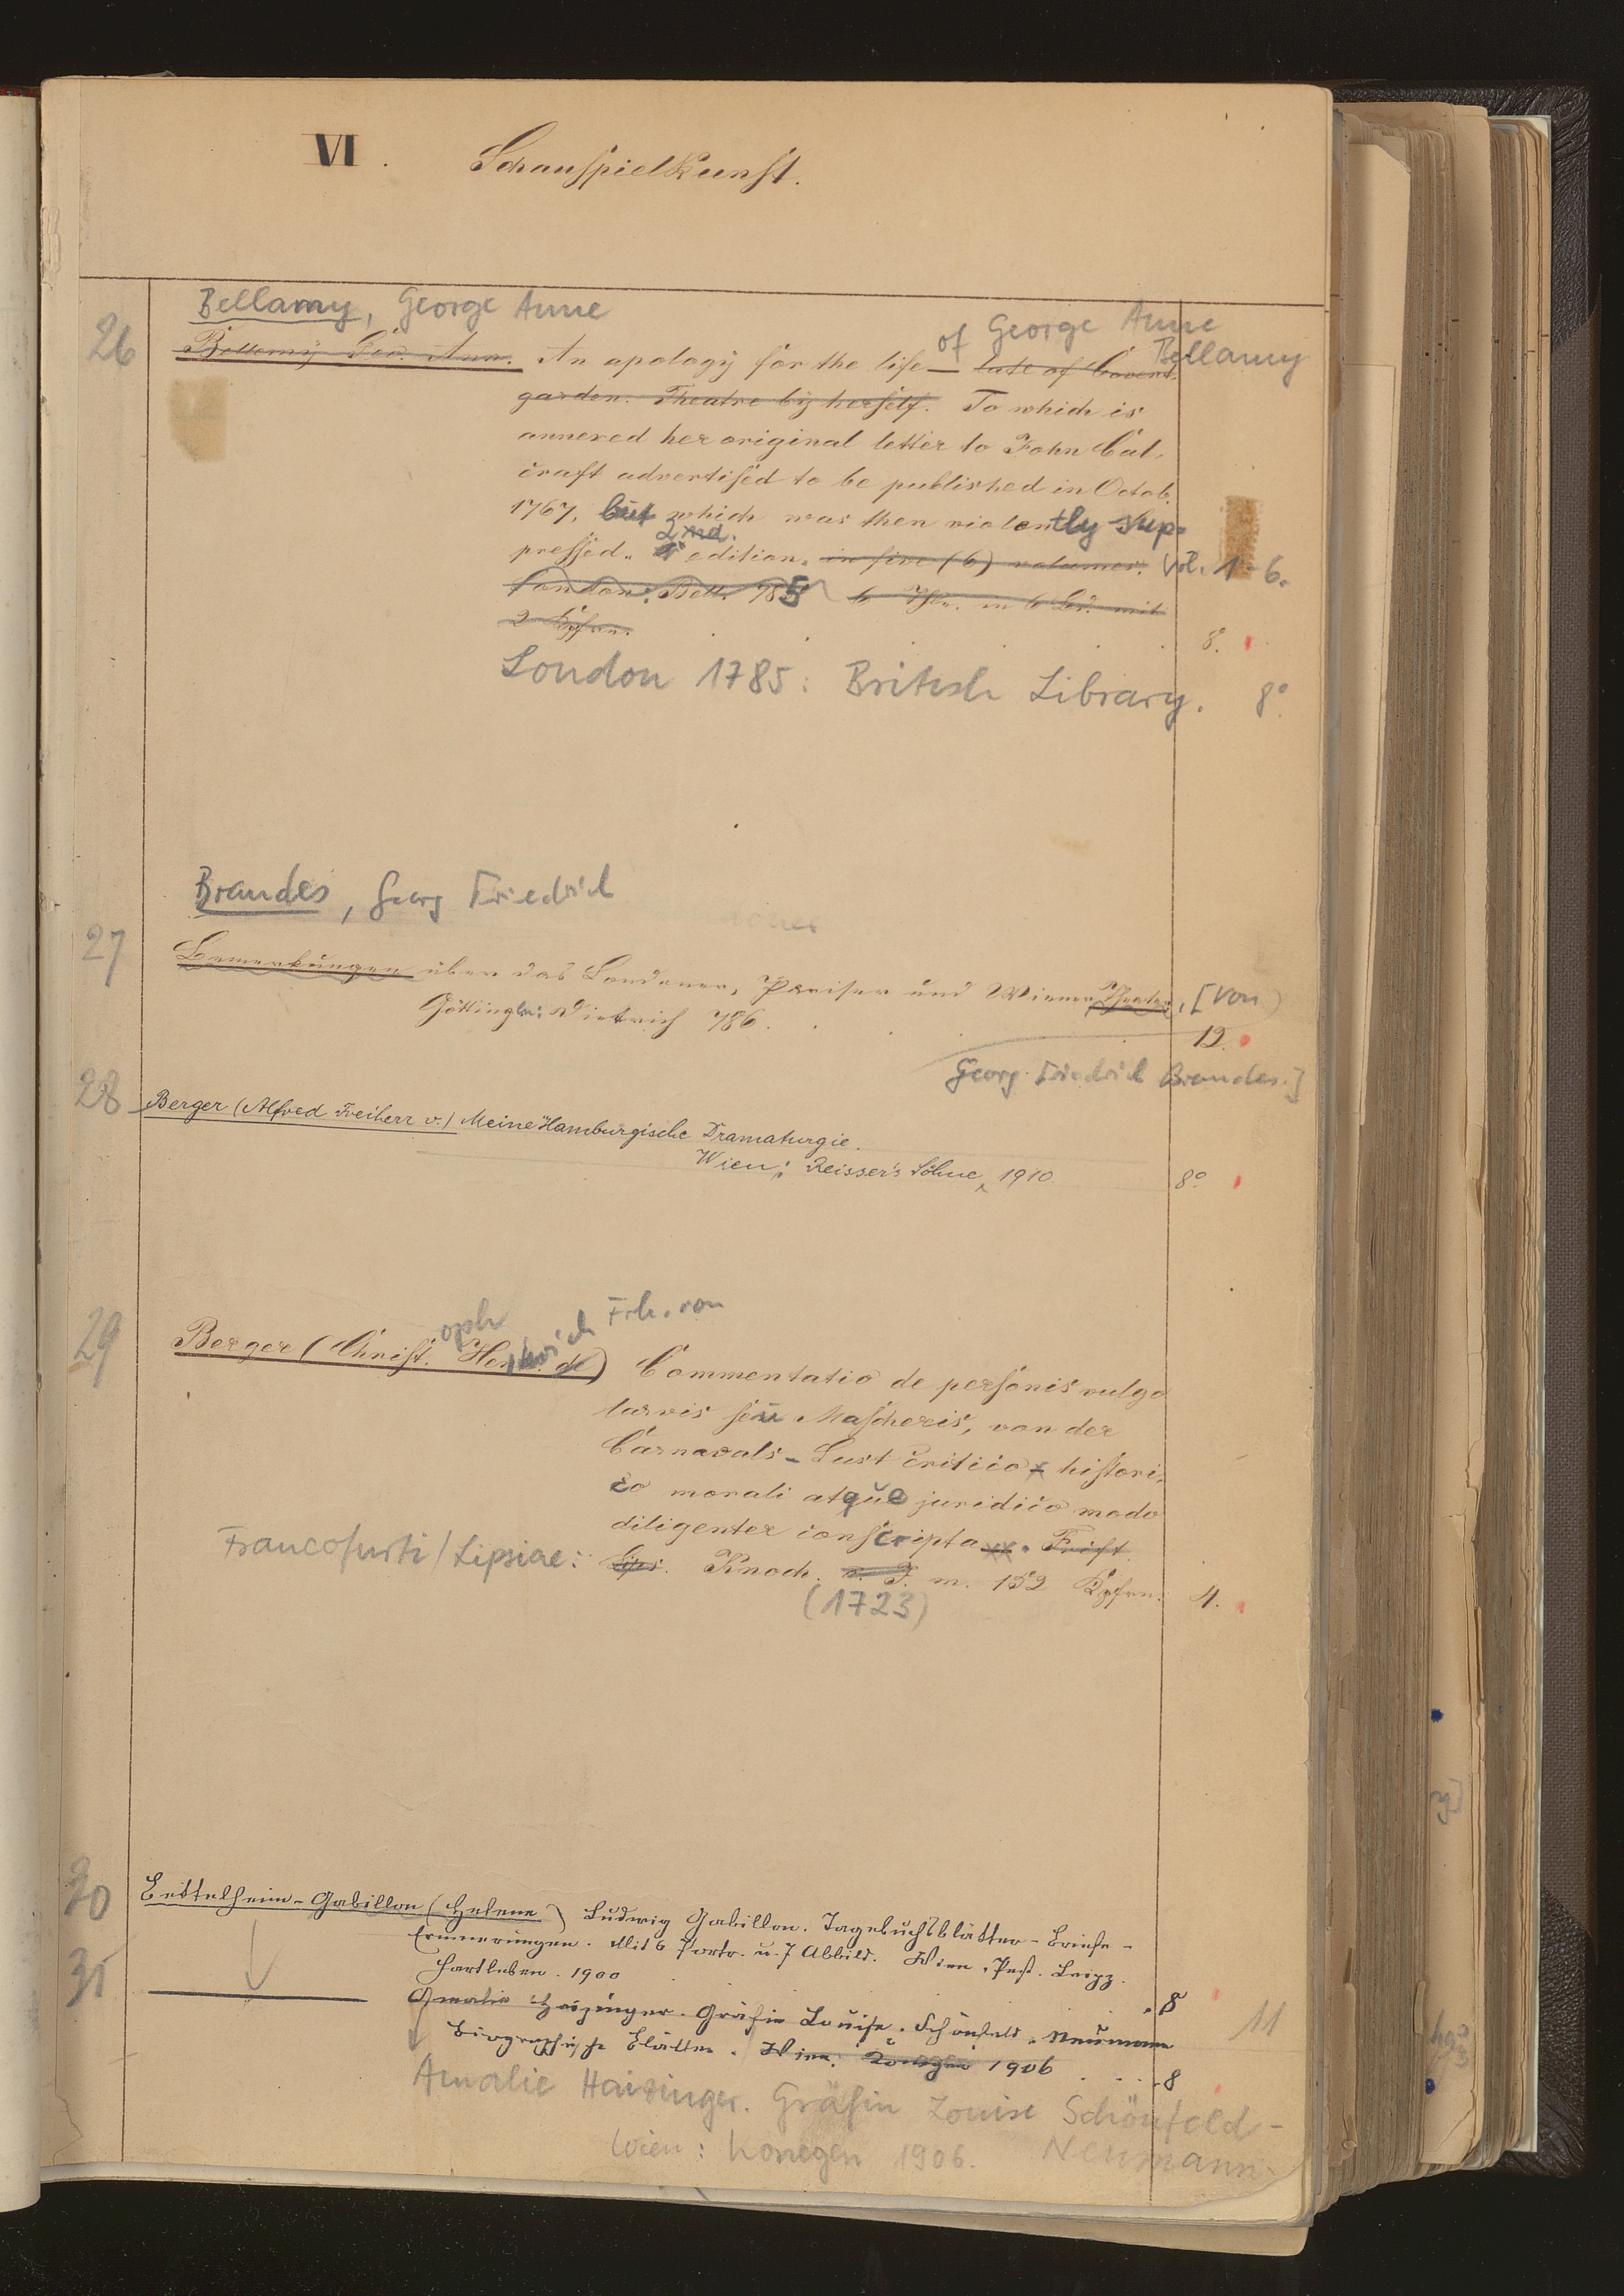 VI. Schauspielkunst.
Bellamy, George Anne
26
Bellamy Geo. Ann. An apology for the life — late of Covent
of George Anne Bellamy
garden. Theatre by herself. To which is
annexed her original letter to John Cal-
craft advertised to be published in Octob.
1767, but which was then violently sup-
pressed. 2nd. edition. in five (6) volumes. Vol. 1-6.
London: Bell. 785 6 Thle. in 6 Bd. mit
2 Kpfrn. 8°.
London 1785: British Library. 8°.
Brandes, Georg Friedrich
27
Bemerkungen über das Londoner, Pariser und Wiener Theater. [von
Göttingen: Dietrich 786. 12.
Georg Friedrich Brandes.]
28 Berger (Alfred Freiherr v.) Meine Hamburgische Dramaturgie.
Wien: Reisser's Söhne, 1910 8°
oph rich Frh. von
29 Berger (Christ. Henr. de) Commentatio de personis vulgo
larvis seu Mascheris, von der
Carnavals-Lust critico histori-
co morali atque juridico modo
diligenter conscripta. Frcft.
Francofurti/Lipsiae: Lips. Knoch. s. J. m. 152 Kpfrn. 4.
(1723)
30 Bettelheim-Gabillon (Helene) Ludwig Gabillon. Tagebuchblätter - Briefe -
Erinnerungen. Mit 6 Portr. u. 7 Abbild. Wien. Pest. Leipz.
Hartleben. 1900 8
31 Amalie Haizinger. Gräfin Louise. Schönfeld. Neumann
11
Biographische Blätter. Wien. Konegen 1906 8
Amalie Haizinger. Gräfin Louise Schönfeld-
Wien: Konegen 1906. Neumann